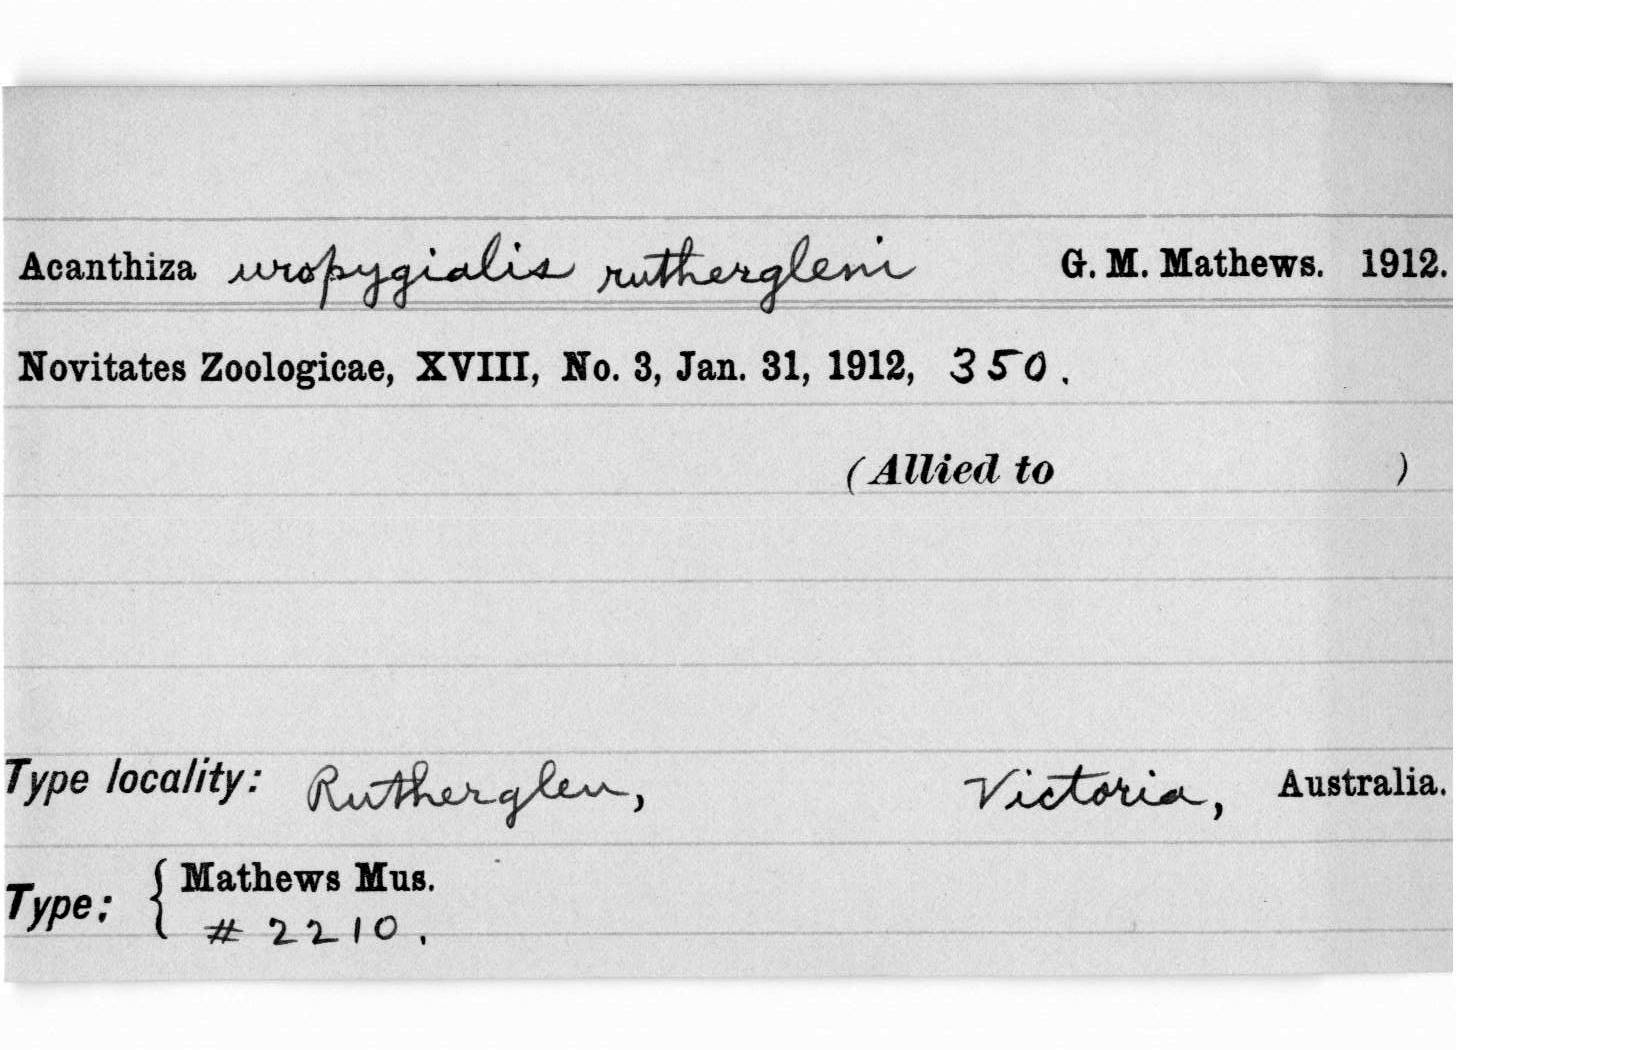 Acanthiza uropygialis ruthergleni G. M. Mathews. 1912.
Novitates Zoologicae, XVIII, No. 3, Jan. 31, 1912, 350.
(Allied to )
Type locality: Rutherglen, Victoria, Australia.
Type: { Mathews Mus.
# 2210.